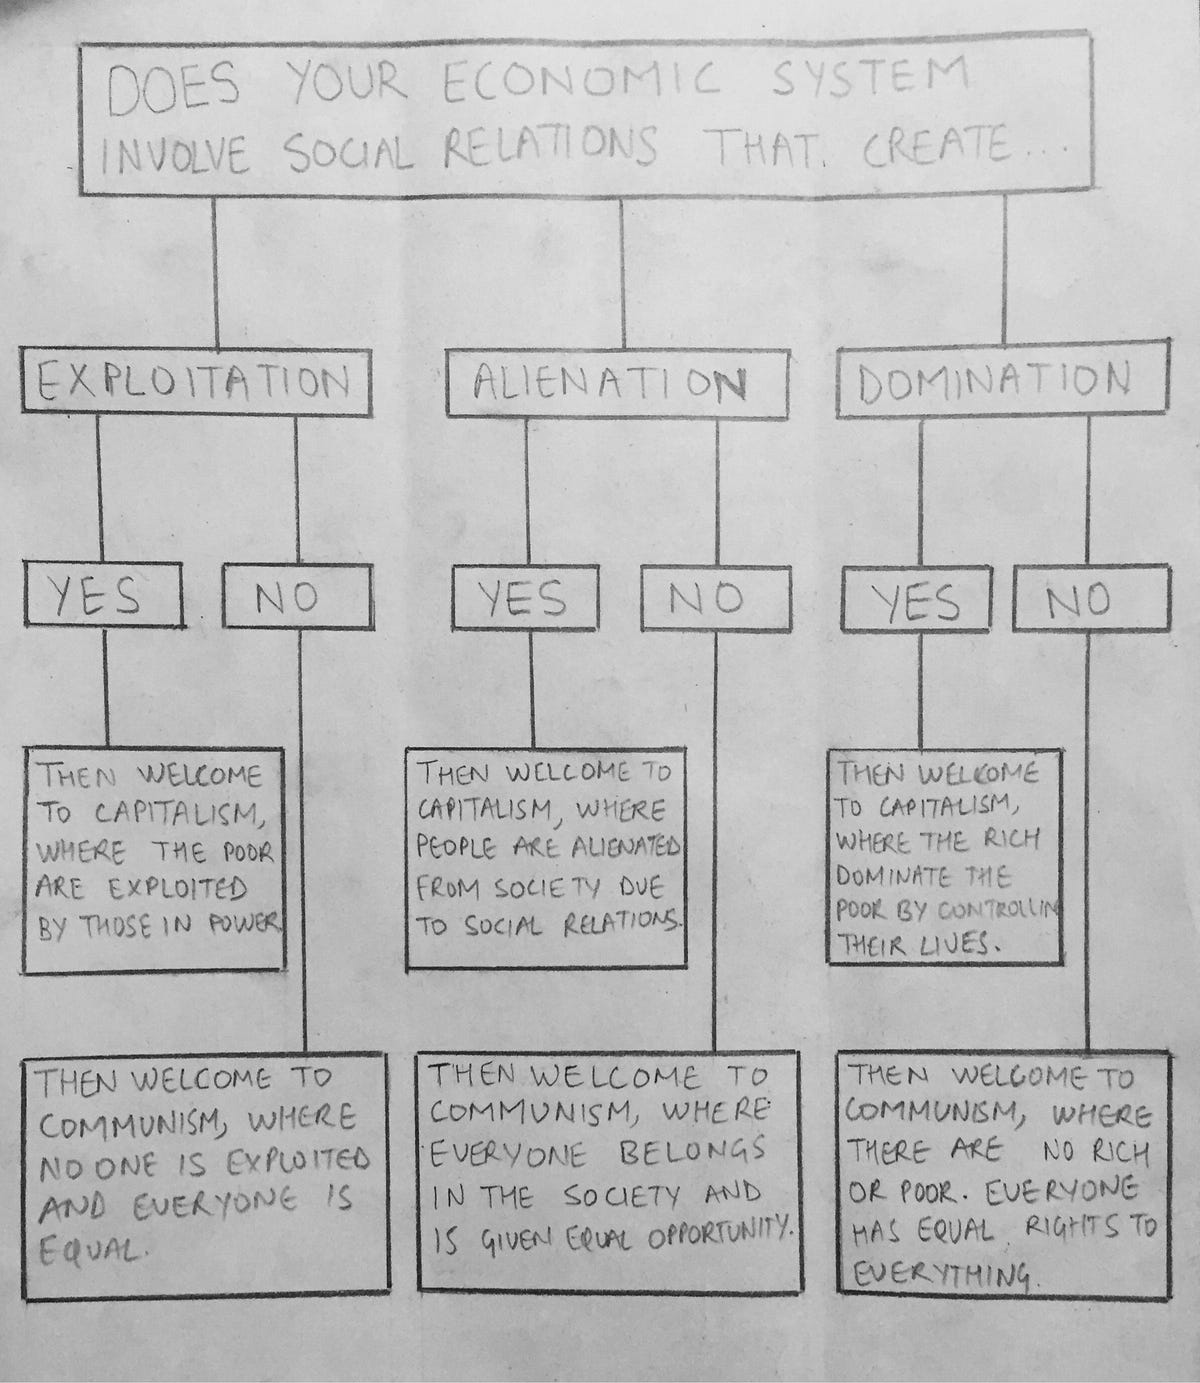 DOES YOUR ECONOMIC SYSTEM
INVOLVE SOCIAL RELATIONS THAT. CREATE...
EXPLOITATION
ALIENATION
DOMINATION
YES
NO
YES
NO
YES
NO
THEN WELCOME
TO CAPITALISM,
WHERE THE POOR
ARE EXPLOITED
BY THOSE IN POWER.
THEN WELCOME TO
CAPITALISM, WHERE
PEOPLE ARE ALIENATED
FROM SOCIETY DUE
TO SOCIAL RELATIONS.
THEN WELCOME
TO CAPITALISM,
WHERE THE RICH
DOMINATE THE
POOR BY CONTROLLIN
THEIR LIVES.
THEN WELCOME TO
COMMUNISM, WHERE
NO ONE IS EXPLOITED
AND EVERYONE IS
EQUAL.
THEN WELCOME TO
COMMUNISM, WHERE
EVERYONE BELONGS
IN THE SOCIETY AND
IS GIVEN EQUAL OPPORTUNITY.
THEN WELCOME TO
COMMUNISM, WHERE
THERE ARE NO RICH
OR POOR. EVERYONE
HAS EQUAL RIGHTS TO
EVERYTHING.